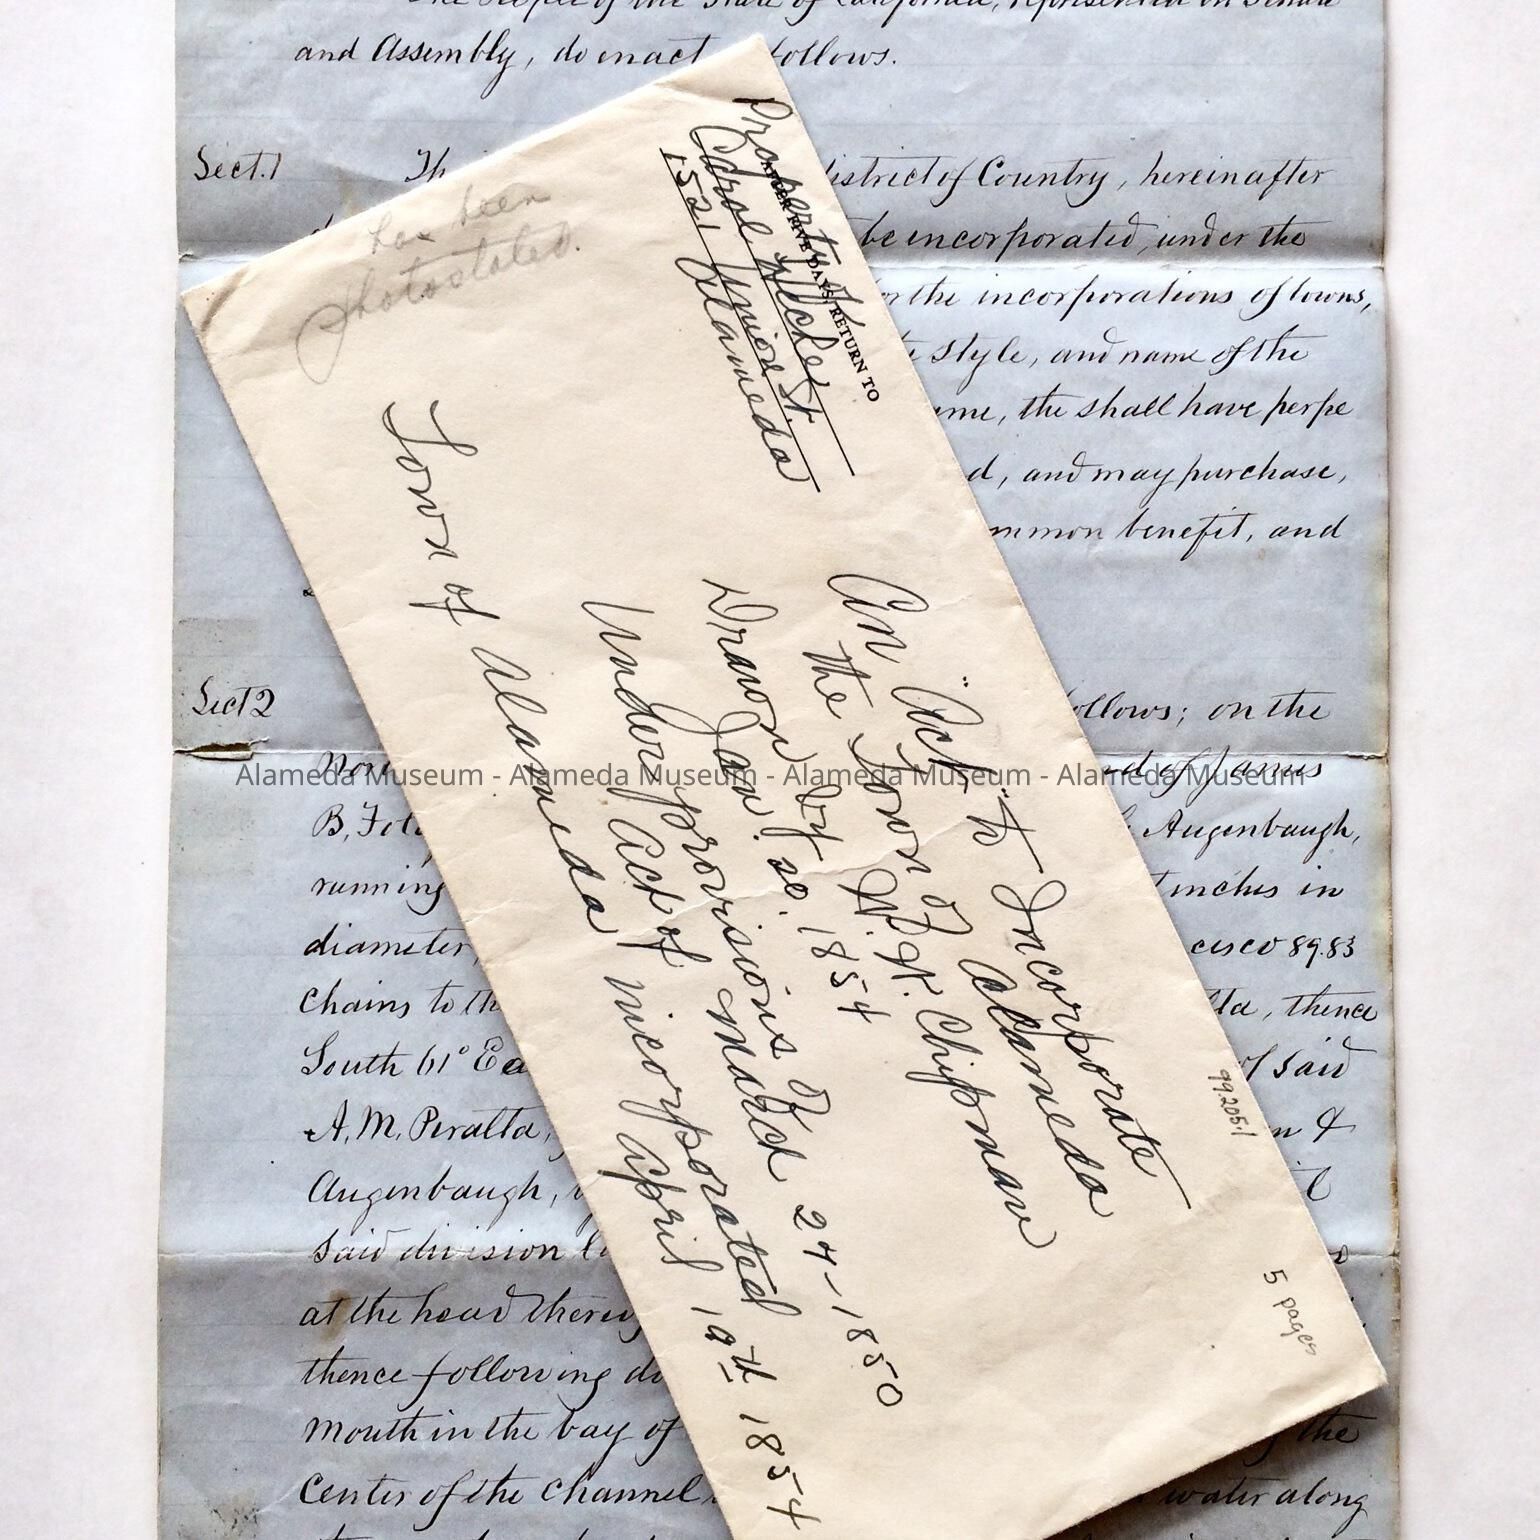 The People of the State of California, represented in Senate
and Assembly, do enact follows.
Sect. 1 Th district of Country, hereinafter
be incorporated, under the
or the incorporations of towns,
style, and name of the
ame, the shall have perpe
d, and may purchase,
mmon benefit, and
Sect 2 ollows; on the
Nor d of James
B, Fol Augenbaugh,
running inches in
diameter, cisco 89.83
chains to th lta, thence
South 61° Ea of said
A. M. Peralta, n &
Augenbaugh,
said division li
at the head there
thence following do
mouth in the bay of the
center of the channel water along
AFTER FIVE DAYS, RETURN TO
Property of
Carol
1521 Union St.
Alameda
has been
photostated.
An "Act" to Incorporate
the Town of Alameda
Drawn by W. W. Chipman
Jan. 20. 1854
Under provisions of
Act of March 24-1850
Town of Alameda incorporated April 19th 1854
99.205.1
5 pages
Alameda Museum - Alameda Museum - Alameda Museum - Alameda Museum